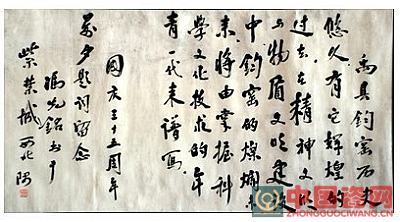 禹县钧窑历史
悠久有它辉煌的
过去在精神文明
与物质文明建设
中钧窑的灿烂
未来将由掌握科
学文化技术的年
青一代来谱写
国庆三十五周年
前夕题词留念
冯先铭书于
紫禁城西北隅
中国瓷网
ZHONGGUOCIWANG.CN